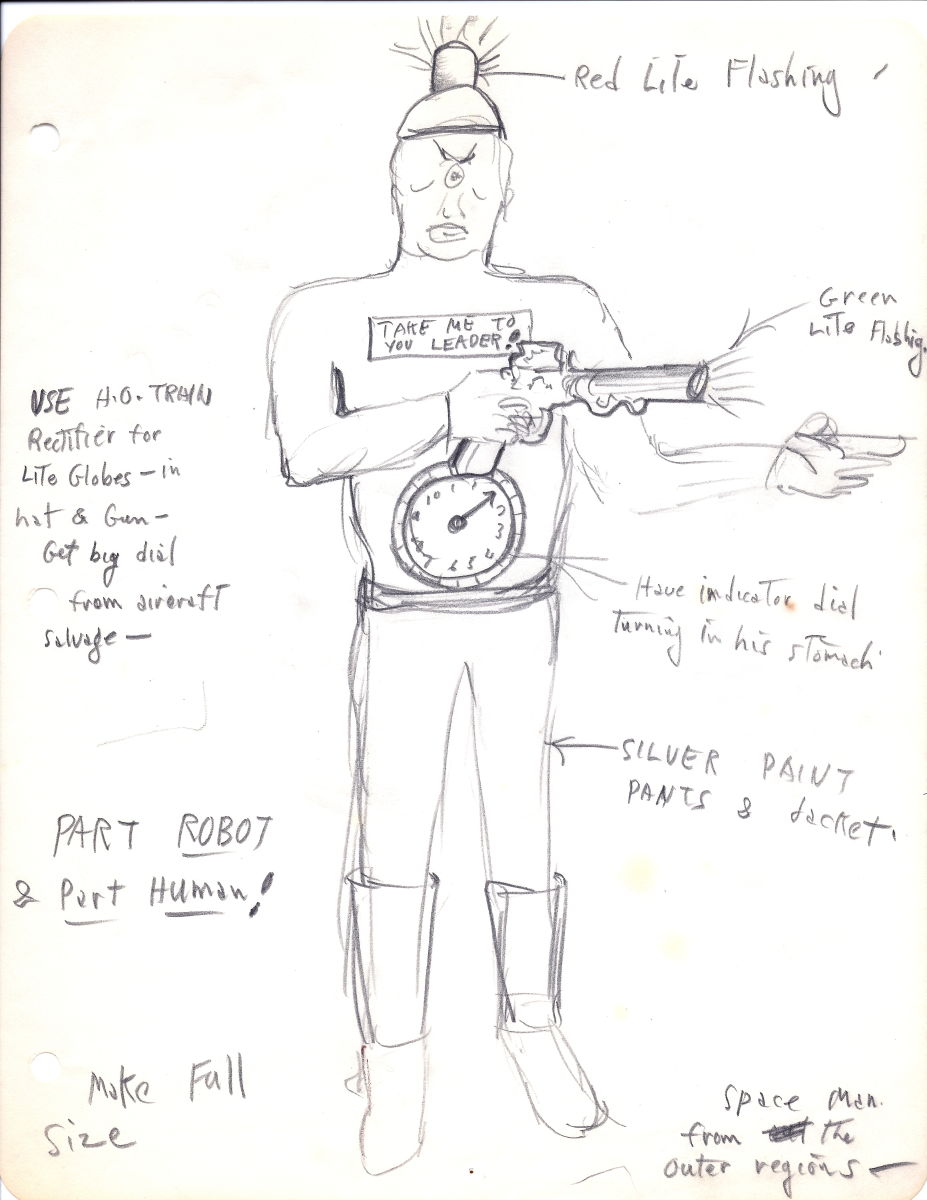 Red Lite Flashing
TAKE ME TO
YOU LEADER!
Green
Lite Flashig.
USE H.O. TRAIN
Rectifier for
Lite Globes – in
hat & Gun –
Get big dial
from aircraft
salvage –
10 1 2
3
4
5
6
Have indicator dial
Turning in his stomach
SILVER PAINT
PANTS & Jacket.
PART ROBOT
& Part Human!
Make Full
Size
Space Man.
from the
outer regions –